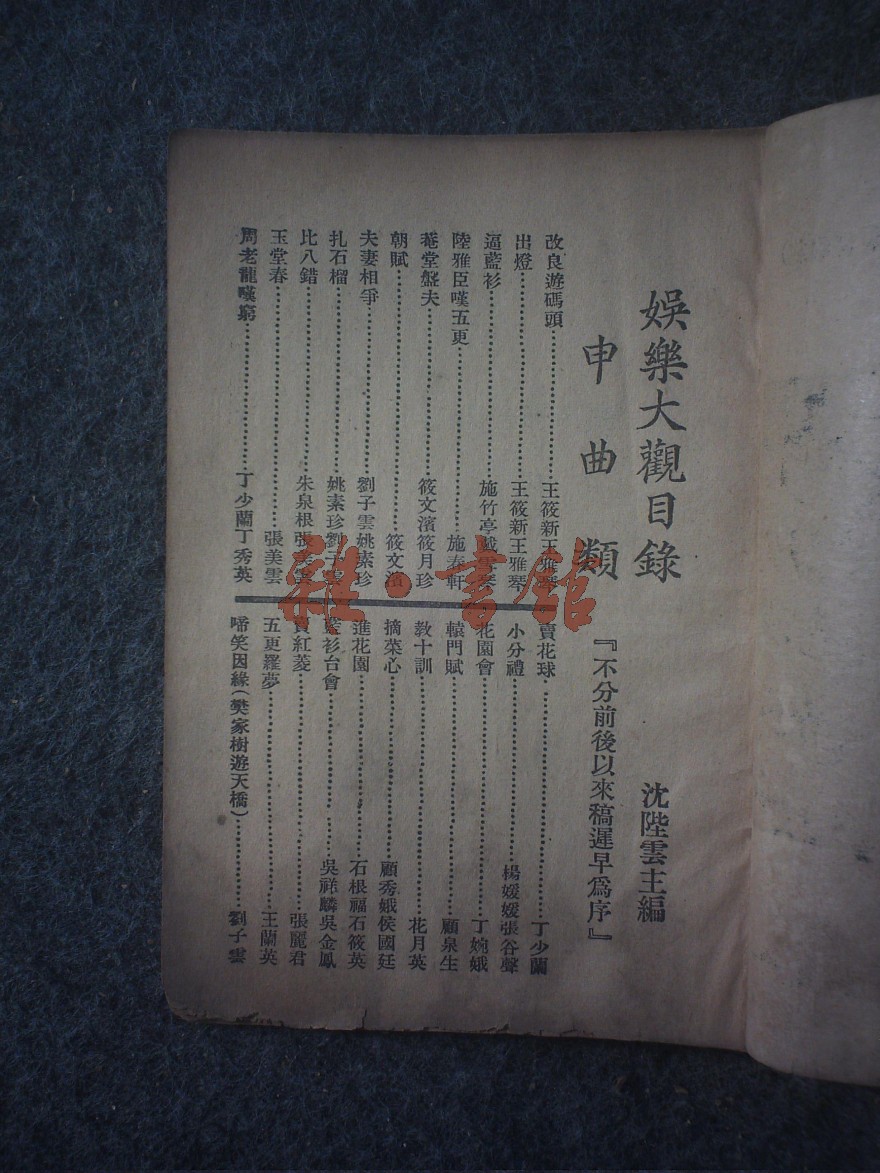 娛樂大觀目錄
沈陛雲主編
申曲類
『不分前後以來稿遲早爲序』
改良遊碼頭……王筱新王雅琴
出燈……王筱新王雅琴
逼藍衫……施竹亭戴雪琴
陸雅臣嘆五更……施春軒
菴堂盤夫……筱文濱筱月珍
朝賦……筱文濱
夫妻相爭……劉子雲姚素珍
扎石榴……姚素珍劉子雲
比八錯……朱泉根張美雲
玉堂春……張美雲
周老龍嘆窮……丁少蘭丁秀英
賣花球……丁少蘭
小分禮……楊媛媛張谷聲
花園會……丁婉娥
轅門賦……顧泉生
教十訓……花月英
摘菜心……顧秀娥侯國廷
進花園……石根福石筱英
藍衫台會……吳祥麟吳金鳳
賣紅菱……張麗君
五更羅夢……王蘭英
啼笑因緣(樊家樹遊天橋)……劉子雲
雜·書館